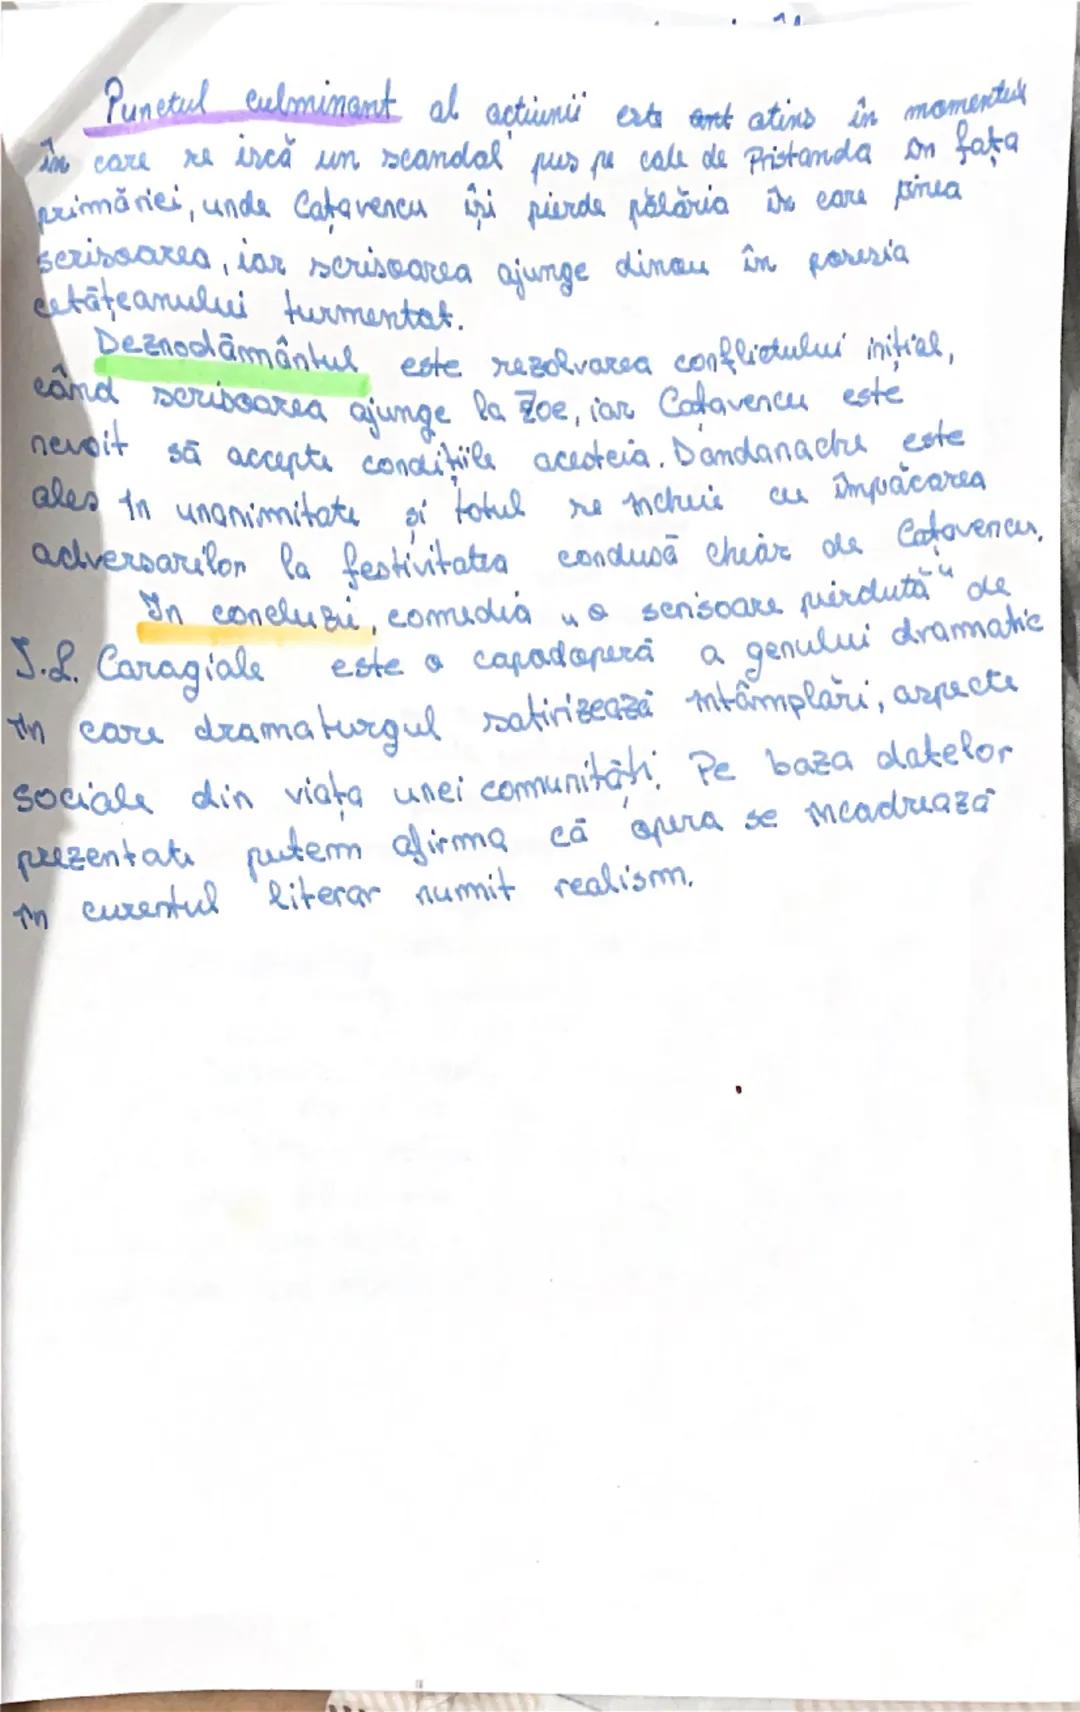 Punctul culminant al acțiunii este atins în momentul
în care se iscă un scandal pus pe cale de Pristanda în fața
primăriei, unde Cațavencu își pierde pălăria în care ținea
scrisoarea, iar scrisoarea ajunge dinou în posesia
cetățeanului turmentat.
Deznodământul este rezolvarea conflictului inițial,
când scrisoarea ajunge la Zoe, iar Cațavencu este
nevoit să accepte condițiile acesteia. Dandanache este
ales în unanimitate și totul se încheie cu împăcarea
adversarilor la festivitatea condusă chiar de Cațavencu.
În concluzie, comedia „O scrisoare pierdută" de
I.L. Caragiale este o capodoperă a genului dramatic
în care dramaturgul satirizează întâmplări, aspecte
sociale din viața unei comunități. Pe baza datelor
prezentate putem afirma că opera se încadrează
în curentul literar numit realism.